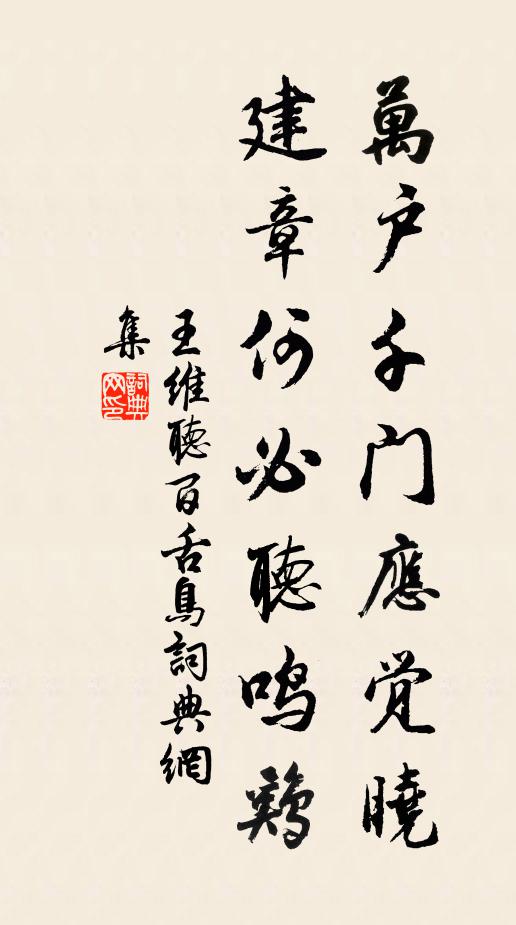 萬户千門應覺曉
建章何必聽鳴鷄
王維聽百舌鳥詞典網
集
詞典
网印